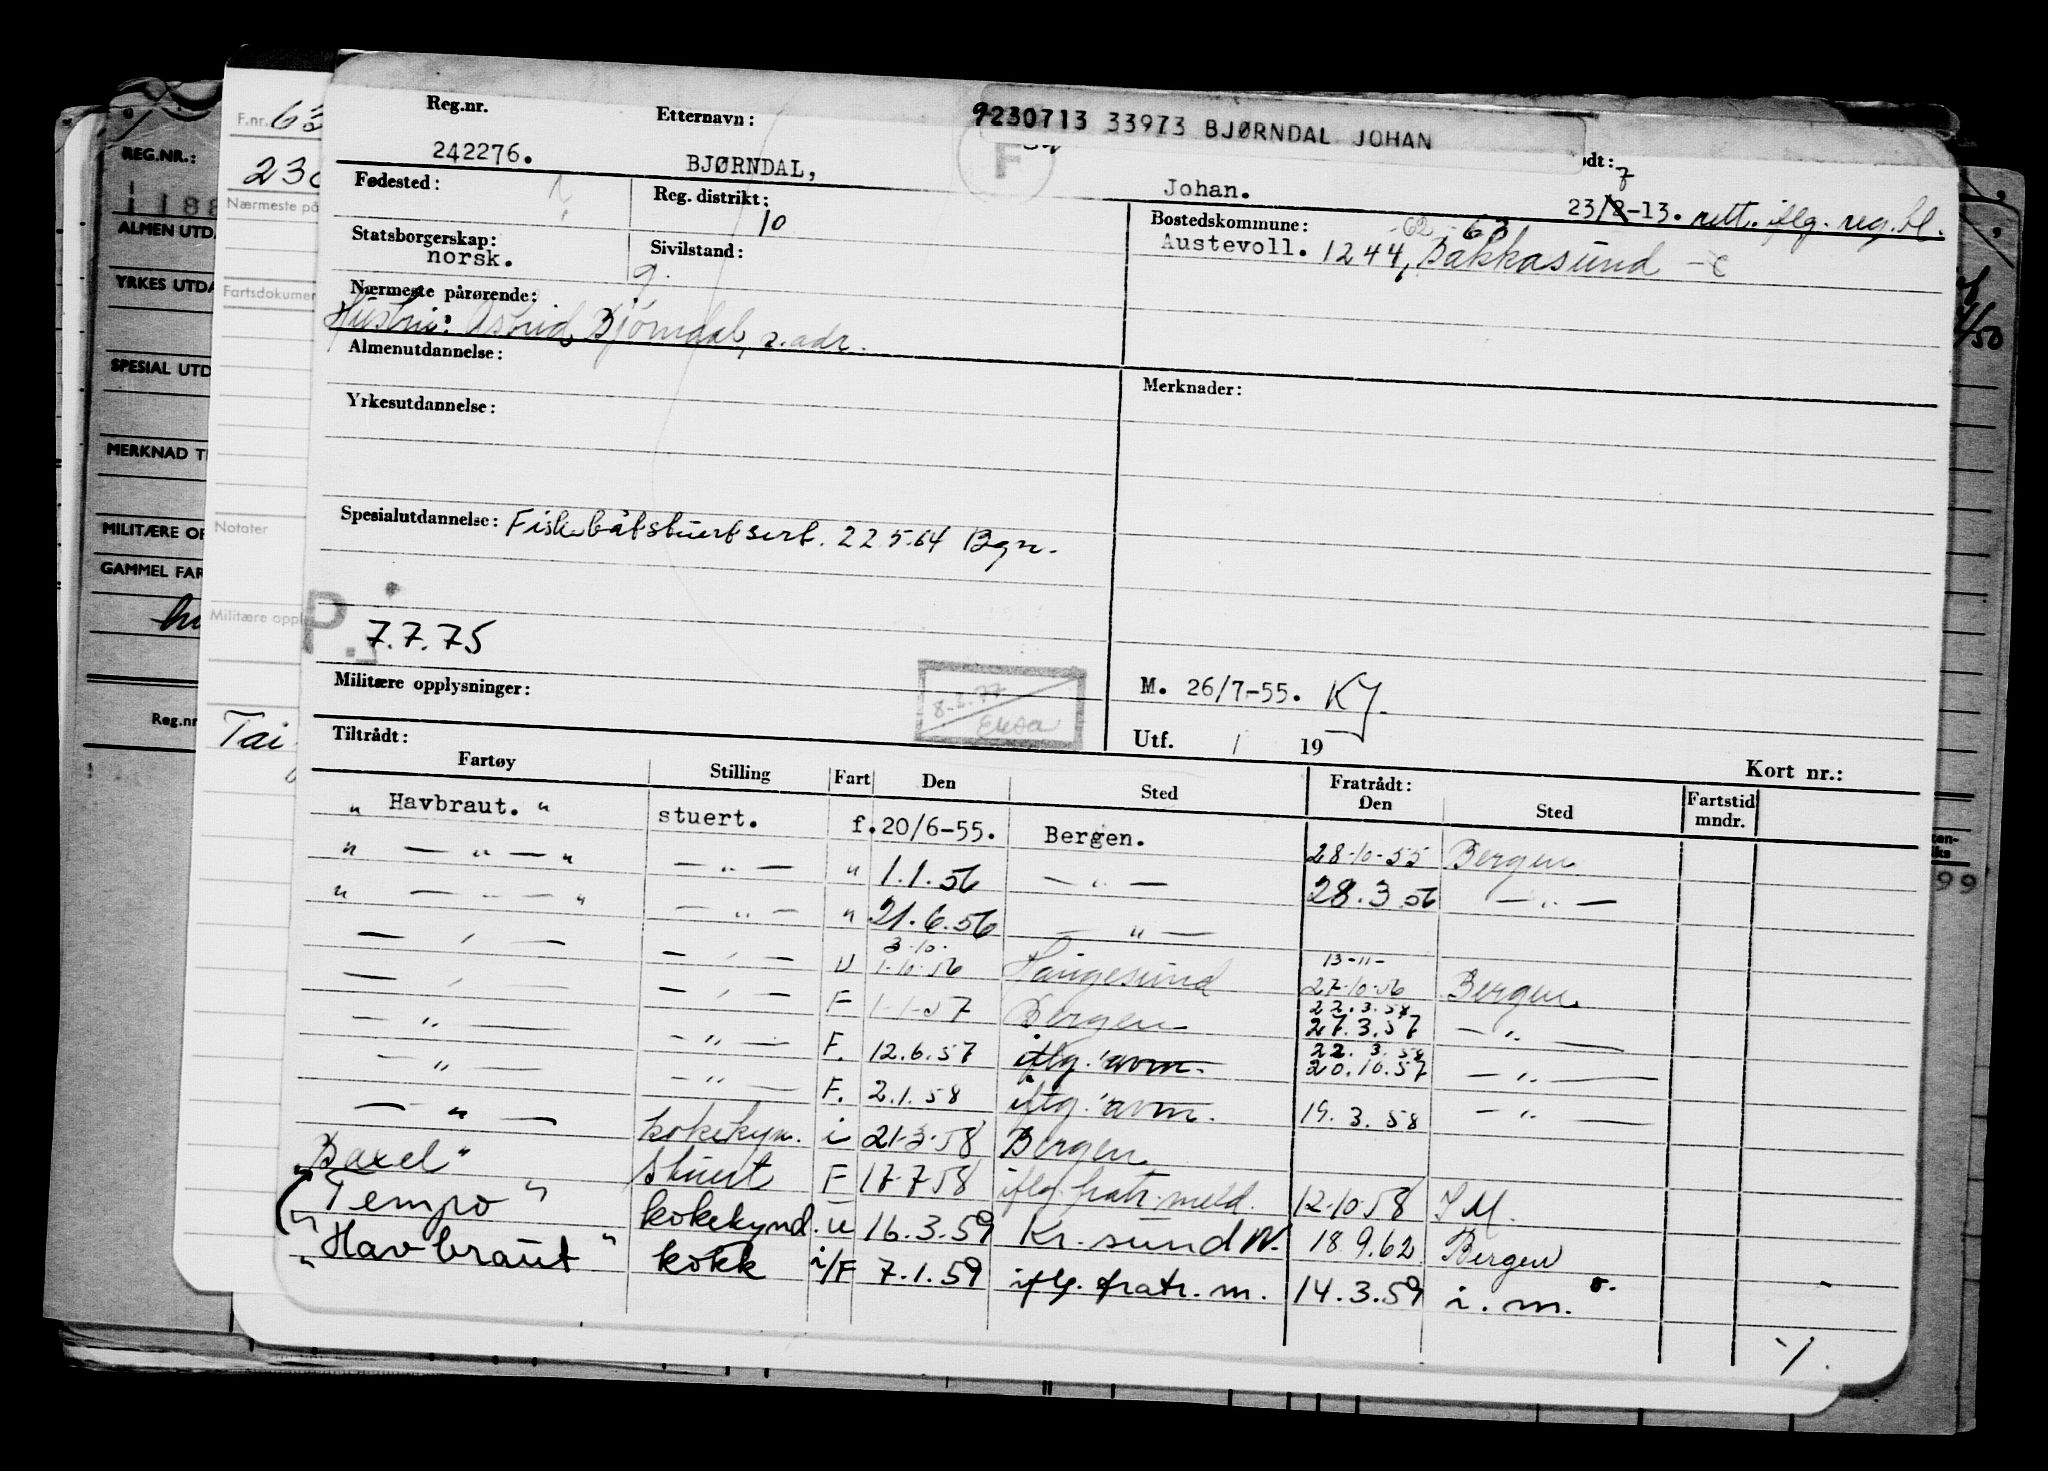 9230713 33973 BJØRNDAL JOHAN
Reg.nr. Etternavn: F dt: 7
242276. BJØRNDAL, Johan. 23/8-13. rett. iflg. reg.bl.
Fødested: Reg. distrikt: 10 Bostedskommune: -62 - 63
Austevoll. 1244, Bakkasund
Statsborgerskap: Sivilstand:
norsk. g.
Nærmeste pårørende:
Hustru: Astrid Bjørndal, s. adr.
Almenutdannelse: Merknader:
Yrkesutdannelse:
Spesialutdannelse: Fiskebåtstuertsert. 22.5.64 Bgn.
P. 7.7.75
Militære opplysninger: M. 26/7-55. KJ.
Elesa
Tiltrådt: Utf. / 19
Kort nr.:
Fartøy Stilling Fart Den Sted Fratrådt: Den Sted Fartstid mndr.
" Havbraut. " stuert. f. 20/6-55. Bergen. 28-10-55 Bergen
" — " — " — " — " 1.1.56 — " — 28.3.56 — " —
" — " — " — " — " 21.6.56 — " —
3-10- 13-11-
— " — — " — U 1-10-56 Haugesund 27-10-56 Bergen
22.3.58
— " — — " — F 1-1-57 Bergen 27.3.57 — " —
22.3.58
— " — — " — F. 12.6.57 iflg. avm. 20.10.57 — " —
— " — — " — F. 2.1.58 iflg. avm. 19.3.58 — " —
— " — kokekyn. i 21-3-58 Bergen
Baxel" Stuert F 17-7-58 iflg. fratr. meld. 12-10-58 I M.
"Tempo" kokekynd. u 16.3.59 Kr.sund N. 18.9.62 Bergen
"Havbraut" kokk i/F 7.1.59 iflg. fratr. m. 14.3.59 i. m.
F.nr. 63
Nærmeste på
Fartsdokumen
Notater
Militære oppl
Tai
REG.NR.:
ALMEN UTDA
YRKES UTDA
SPESIAL UTD
MERKNAD T
MILITÆRE OP
GAMMEL FAR
Reg.nr
99